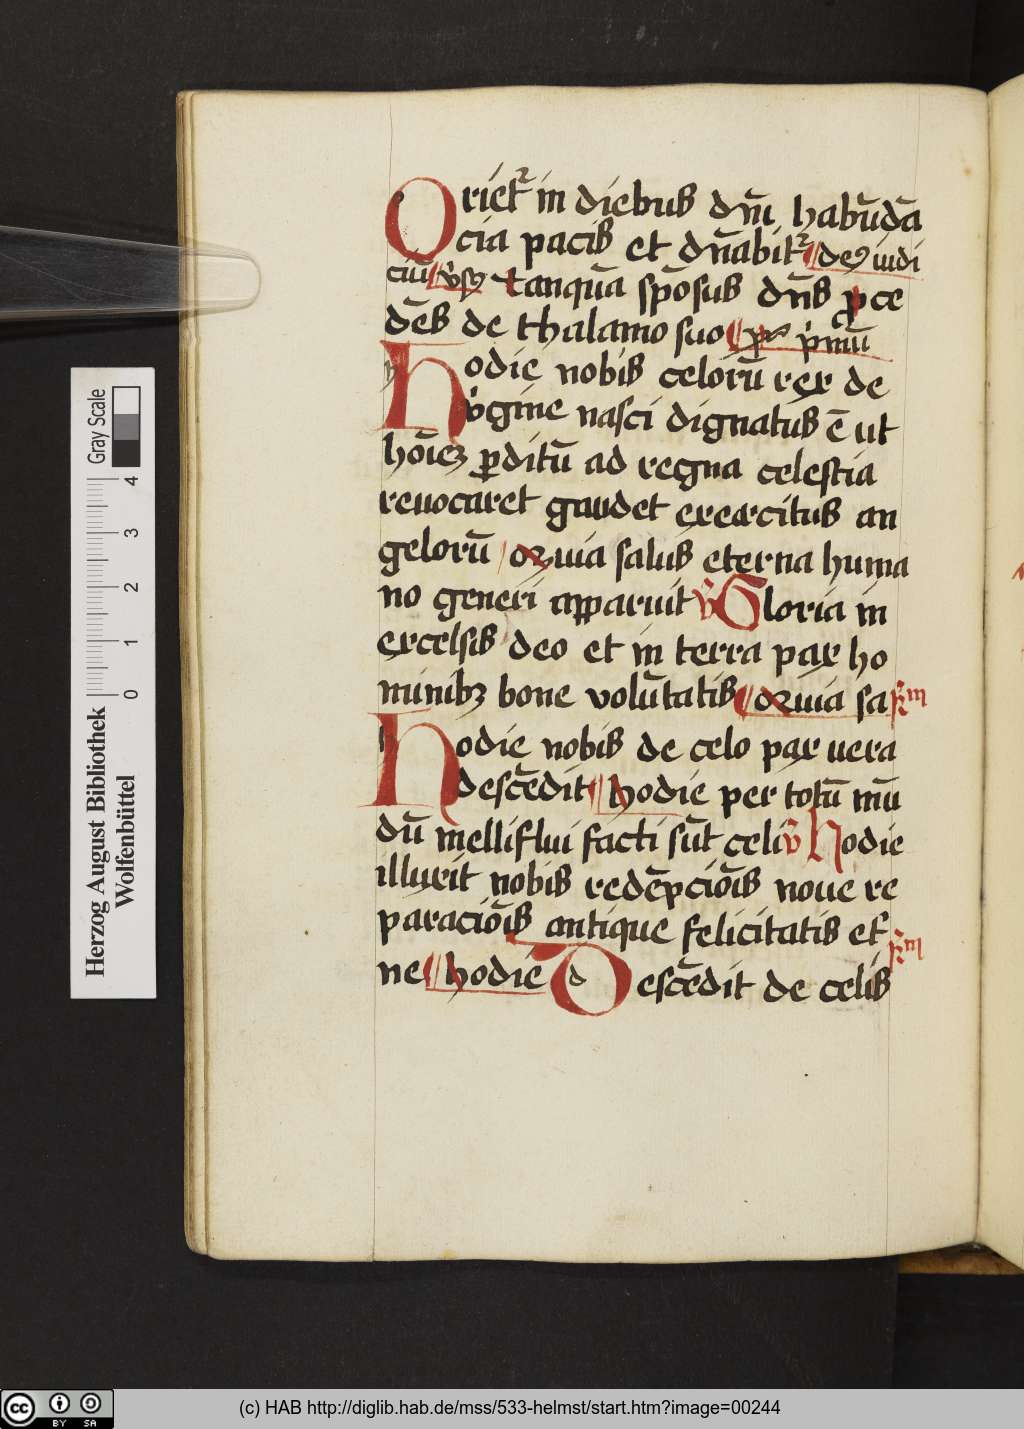 Oriet᷑ in diebus dn̄i habūdā
cia pacis et dn̄abit᷑ deꝰ iudi
ciū v̓sꝰ tanquā spōsus dn̄s ꝓce
dēs de thalamo suo pͬ p̓mū
Hodie nobis celorū rex de
v̓gine nasci dignatus ē ut
hōieꝫ ꝑditū ad regna celestia
reuocaret gaudet exercitus an
gelorū qꝛ uia salus eterna huma
no generi apparuit V̓ Gloria in
excelsis deo et in terra pax ho
minibꝫ bone volūtatis qꝛ uia sa Rm
Hodie nobis de celo pax uera
descēdit hodie per totū mū
dū melliflui facti sūt celi V̓ Hodie
illuxit nobis redēpciōis noue re
paraciōis antique felicitatis et
ne hodie Descēdit de celis Rm
Gray Scale
0 1 2 3 4
Herzog August Bibliothek
Wolfenbüttel
cc BY SA
(c) HAB http://diglib.hab.de/mss/533-helmst/start.htm?image=00244